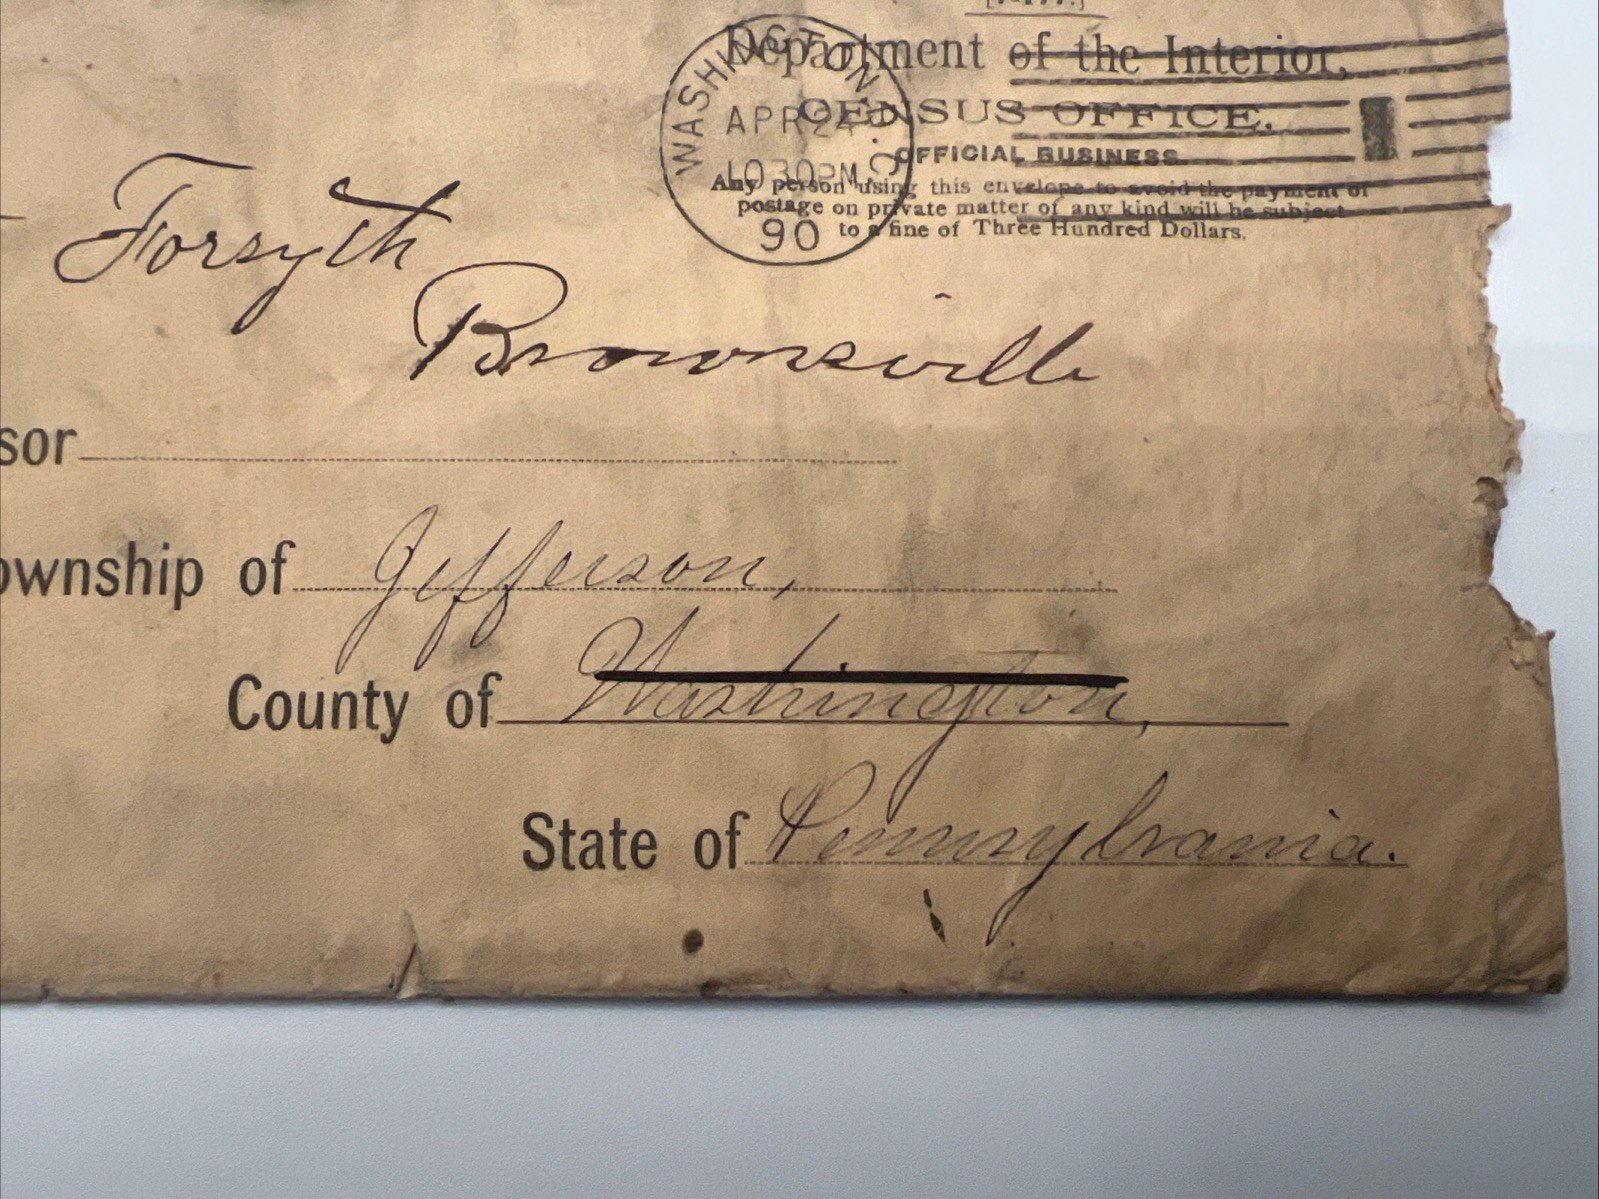 [7-177.]
Department of the Interior,
CENSUS OFFICE.
OFFICIAL BUSINESS.
Any person using this envelope to avoid the payment of
postage on private matter of any kind will be subject
to a fine of Three Hundred Dollars.
WASHINGTON, D.C.
APR 24
1030PM
90
Forsyth
Brownsville
sor
ownship of Jefferson,
County of Washington,
State of Pennsylvania.